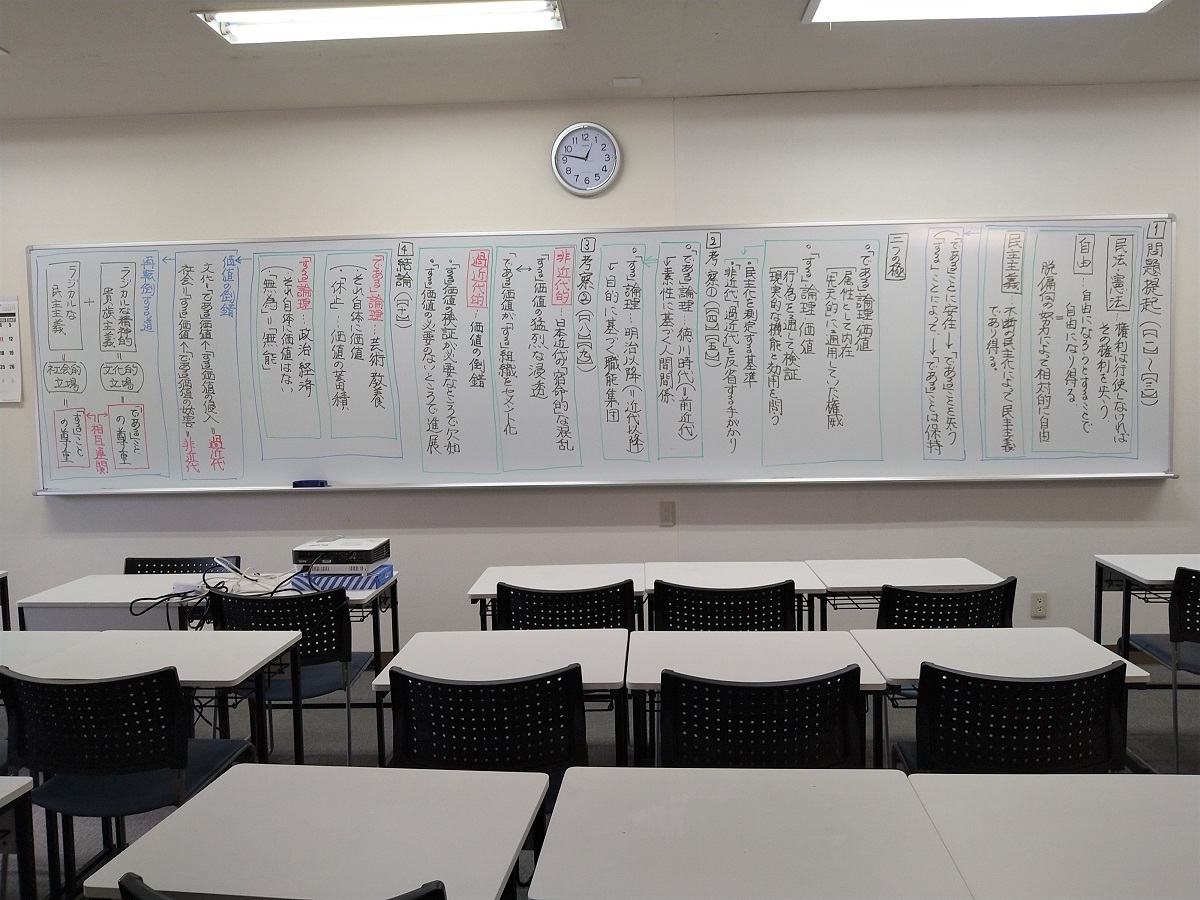 1 問題提起（【一】〜【三】）
民法・憲法 権利は行使しなければ
その権利を失う
自由…自由になろうとすることで
自由になり得る
＝
脱偏向の努力によって相対的に自由
民主主義…不断の民主化によって民主主義
であり得る。
（「である」ことに安住→「である」ことを失う
「する」ことによって→「である」ことは保持
二つの極
。「である」論理・価値
属性として内在
先天的に通用していた権威
。「する」論理・価値
行為を通して検証
現実的な機能と効用を問う
・民主化を測定する基準
・「非近代」「過近代」を反省する手がかり
2 考察①（【四】〜【七】）
。「である」論理…徳川時代（＝前近代）
↳素性に基づく人間関係
。「する」論理…明治以降（＝近代以降）
↳目的に基づく職能集団
3 考察②（【八】【九】）
非近代的…日本近代の宿命的な混乱
「する」価値の猛烈な浸透
↔
「である」価値が「する」組織をセメント化
過近代的…価値の倒錯
・「する」価値の検証が必要なところで欠如
・「する」価値の必要のないところで進展
4 結論（【十】）
「である」論理…芸術・教養
・それ自体に価値
・「休止」…価値の蓄積
「する」論理…政治・経済
それ自体に価値はない
（「無為」＝「無能」
価値の倒錯
文化＝「である」価値↑「する」価値の侵入＝過近代
＝「する」価値↑「である」価値の妨害＝非近代
再転倒する道
ラジカルな精神的
貴族主義
＝
文化的
立場
＝
「である」こと
の尊重
＋
相互連関
ラジカルな
民主主義
＝
社会的
立場
＝
「する」こと
の尊重
12
1
2
3
4
5
6
7
8
9
10
11